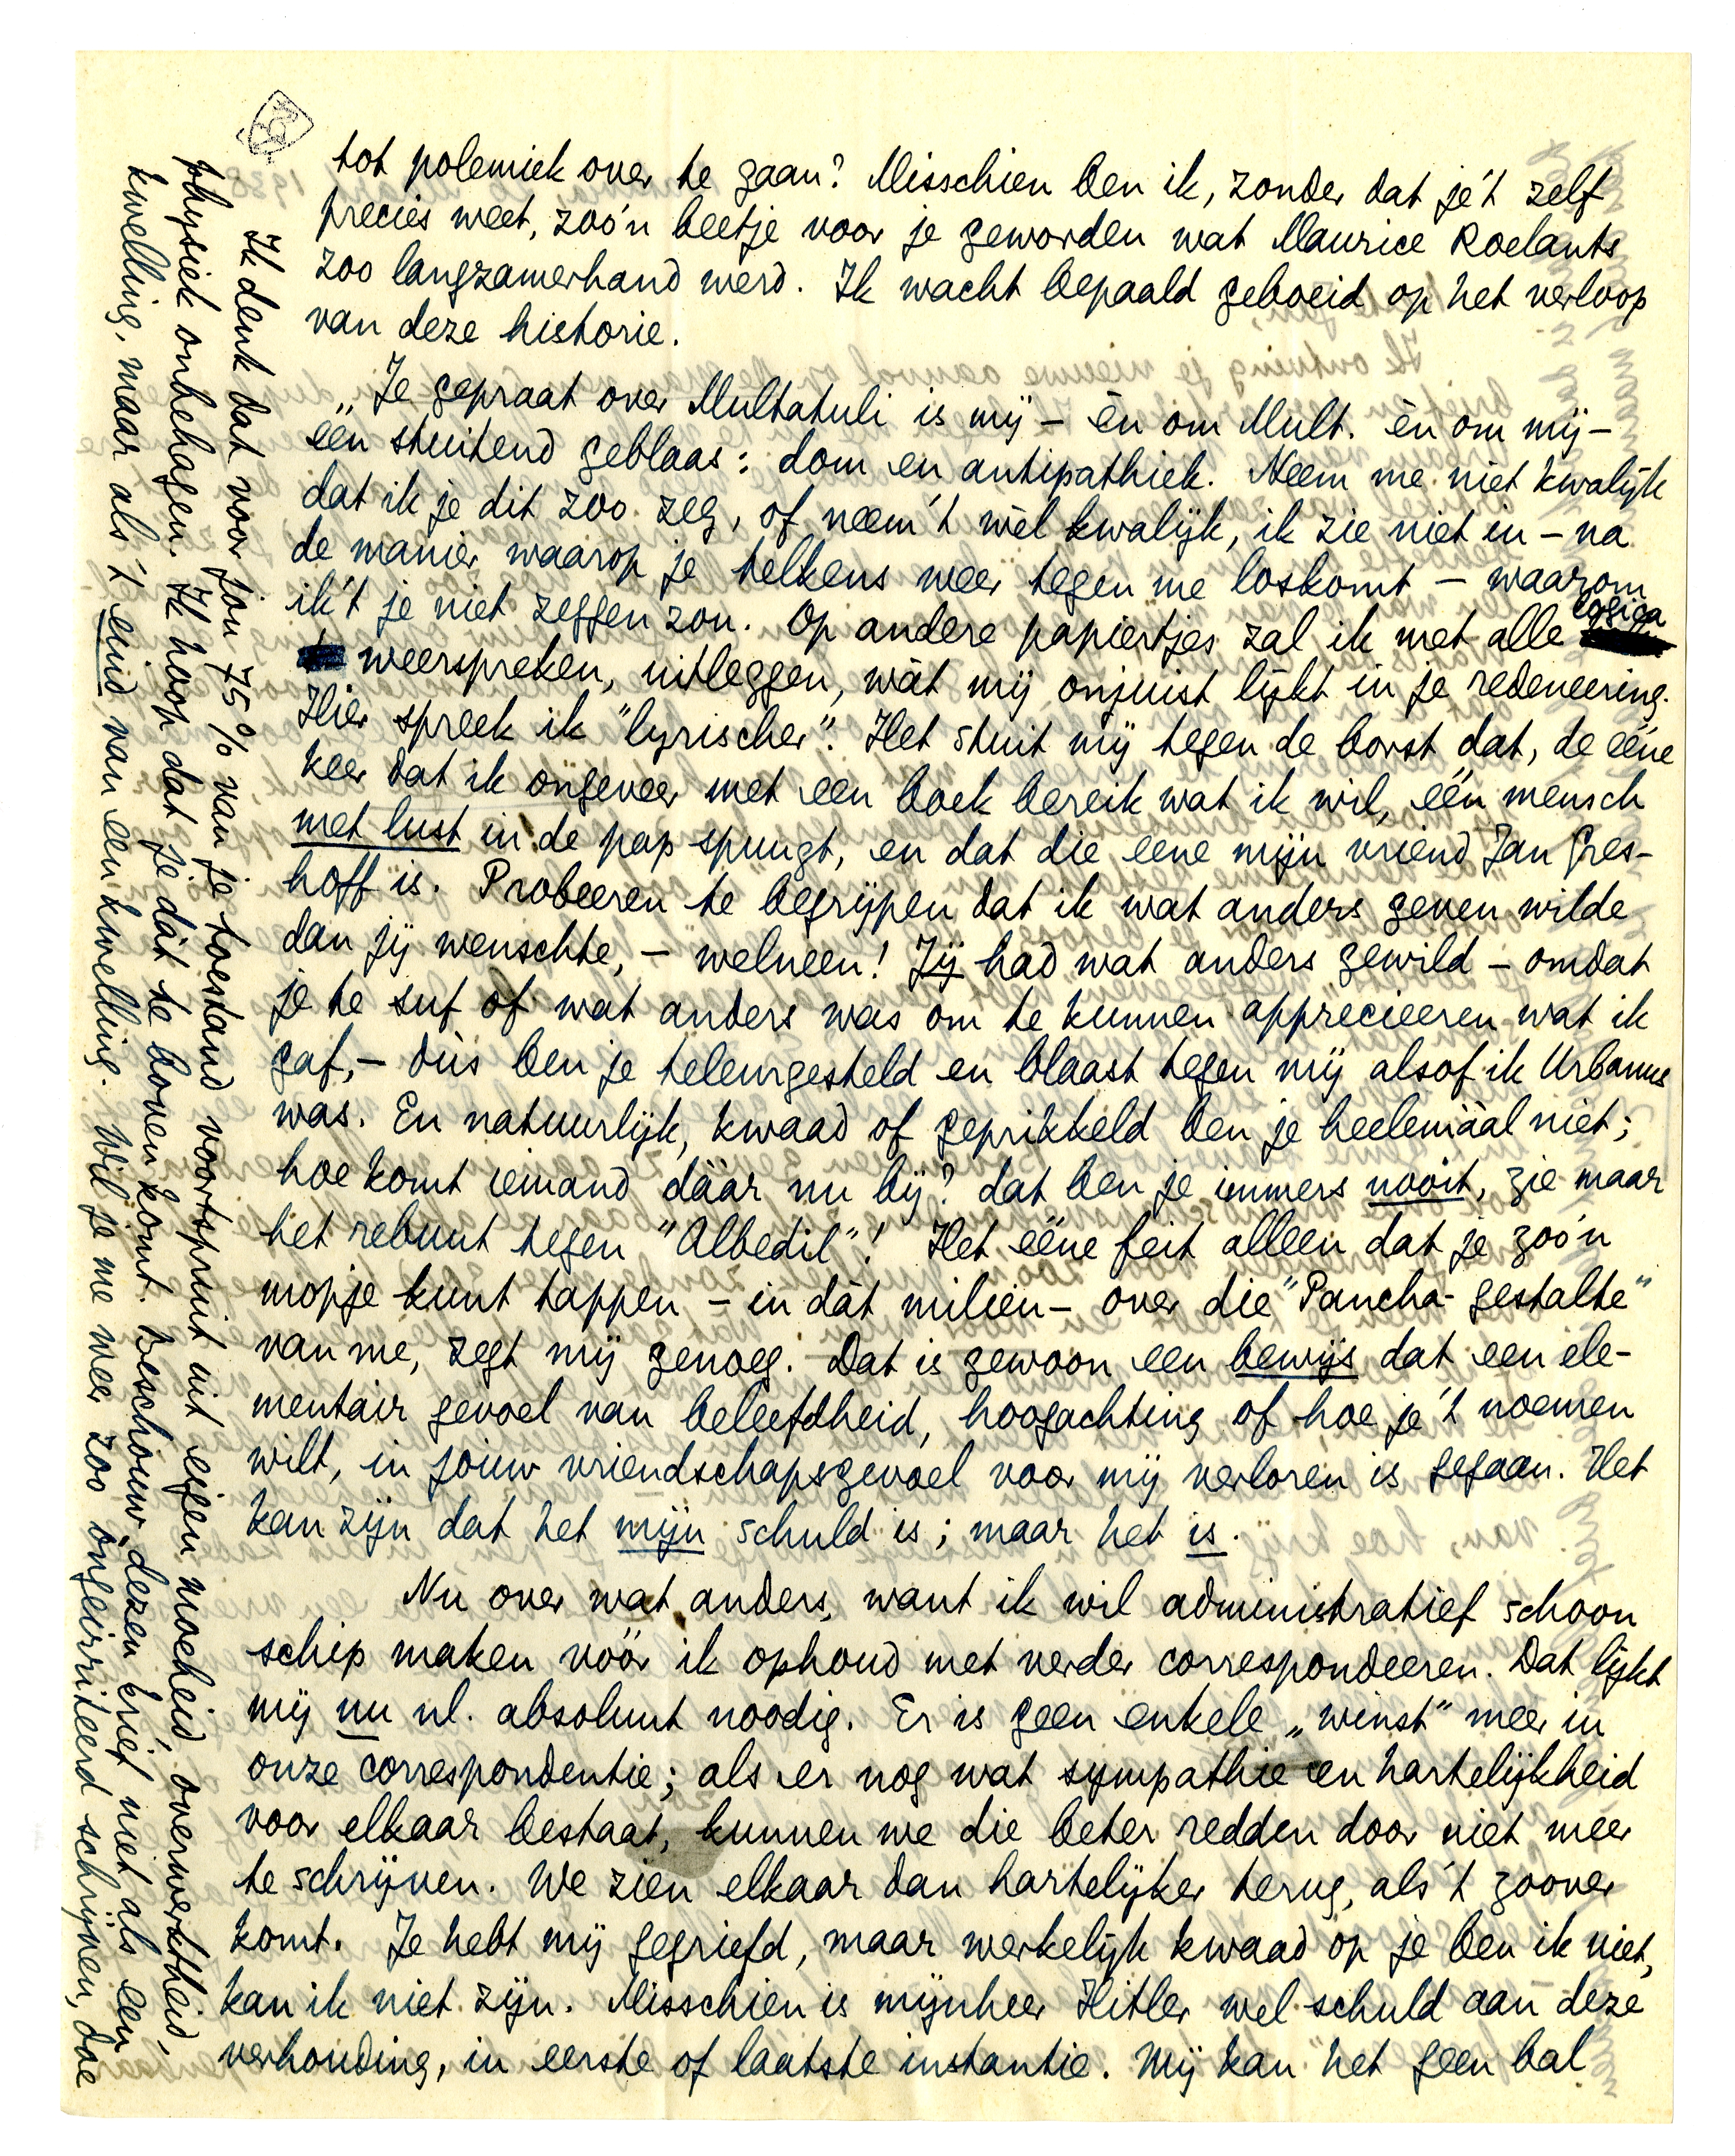 tot polemiek over te gaan? Misschien ben ik, zonder dat je't zelf
precies weet, zoo'n beetje voor je geworden wat Maurice Roelants
zoo langzamerhand werd. Ik wacht bepaald geboeid op het verloop
van deze historie.
„Je gepraat over Multatuli is mij – èn om Mult. èn om mij –
een stuitend geblaas: dom en antipathiek. Neem me niet kwalijk
dat ik je dit zoo zeg, of neem 't wèl kwalijk, ik zie niet in – na
de manier waarop je telkens weer tegen me loskomt – waarom
ik 't je niet zeggen zou. Op andere papiertjes zal ik met alle logica
weerspreken, uitleggen, wàt mij onjuist lijkt in je redeneering.
Hier spreek ik "lyrischer". Het stuit mij tegen de borst dat, de ééne
keer dat ik ongeveer met een boek bereik wat ik wil, één mensch
met lust in de pap spuugt, en dat die eene mijn vriend Jan Gres-
hoff is. Probeeren te begrijpen dat ik wat anders geven wilde
dan jij wenschte, – welneen! Jij had wat anders gewild – omdat
je te suf of wat anders was om te kunnen apprecieeren wat ik
gaf, – dùs ben je teleurgesteld en blaast tegen mij alsof ik Urbanus
was. En natuurlijk, kwaad of geprikkeld ben je heelemáál niet;
hoe komt iemand dáár nu bij? dat ben je immers nooit, zie maar
het rebuut tegen "Albedil"! Het ééne feit alleen dat je zoo'n
mopje kunt tappen – in dàt milieu – over die "Pancha-gestalte"
van me, zegt mij genoeg. Dat is gewoon een bewijs dat een ele-
mentair gevoel van beleefdheid, hoogachting of hoe je 't noemen
wilt, in jouw vriendschapsgevoel voor mij verloren is gegaan. Het
kan zijn dat het mijn schuld is; maar het is.
Nu over wat anders, want ik wil administratief schoon
schip maken vóór ik ophoud met verder correspondeeren. Dat lijkt
mij nu nl. absoluut noodig. Er is geen enkele „winst" meer in
onze correspondentie; als er nog wat sympathie en hartelijkheid
voor elkaar bestaat, kunnen we die beter redden door niet meer
te schrijven. We zien elkaar dan hartelijker terug, als 't zoover
komt. Je hebt mij gegriefd, maar werkelijk kwaad op je ben ik niet,
kan ik niet zijn. Misschien is mijnheer Hitler wel schuld aan deze
verhouding, in eerste of laatste instantie. Mij kan het geen bal
Ik denk dat voor jou 75% van je toestand voortspruit uit eigen moeheid, overwerktheid,
physiek onbehagen. Ik hoop dat je dàt te boven komt. Beschouw dezen brief niet als een
kwelling, maar als 't eind van een kwelling. Wil je me weer zoo ongeïrriteerd schrijven, doe